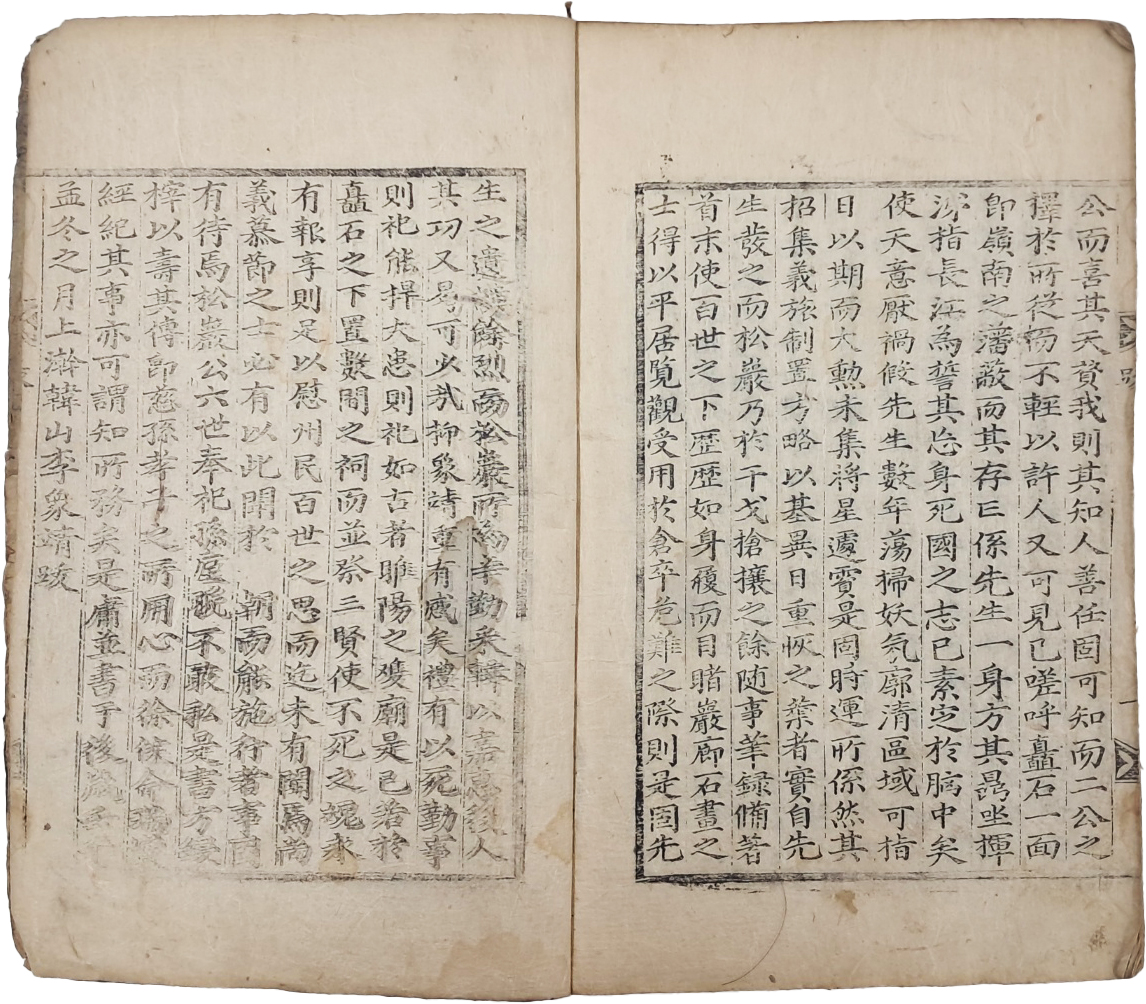 公而喜其天資我則其知人善任固可知而二公之
擇於所從而不輕以許人又可見已嗟呼矗石一面
卽嶺南之藩蔽而其存亡係先生一身方其冐坐揮
涕指長江為誓其忘身死國之志已素定於胸中矣
使天意厭禍假先生數年蕩掃妖氣廓清區域可指
日以期而大勳未集將星遽霣是固時運所係然其
招集義旅制置方略以基異日重恢之業者實自先
生發之而松巖乃於干戈搶攘之餘随事筆録備著
首末使百世之下歷歷如身履而目睹巖廊石畫之
士得以平居覧觀受用於倉卒危難之際則是固先
跋
一
生之遺 餘烈而松巖所為辛勤采輯以嘉惠後人
其功又曷可少㢤抑象靖重有感矣禮有以死勤事
則祀能捍大患則祀如古者睢陽之雙廟是已若於
矗石之下置數間之祠而並祭三賢使不死之魂永
有報享則足以慰州民百世之思而迄未有闡焉尚
義慕節之士必有以此聞於 朝而能施行者事固
有待焉松巖公六世奉祀孫 不敢私是書方鋟
梓以壽其傳卽慈孫孝子之所用心而徐 命
經紀其事亦可謂知所務矣是庸並書于後歲
孟冬之月上澣韓山李象靖跋